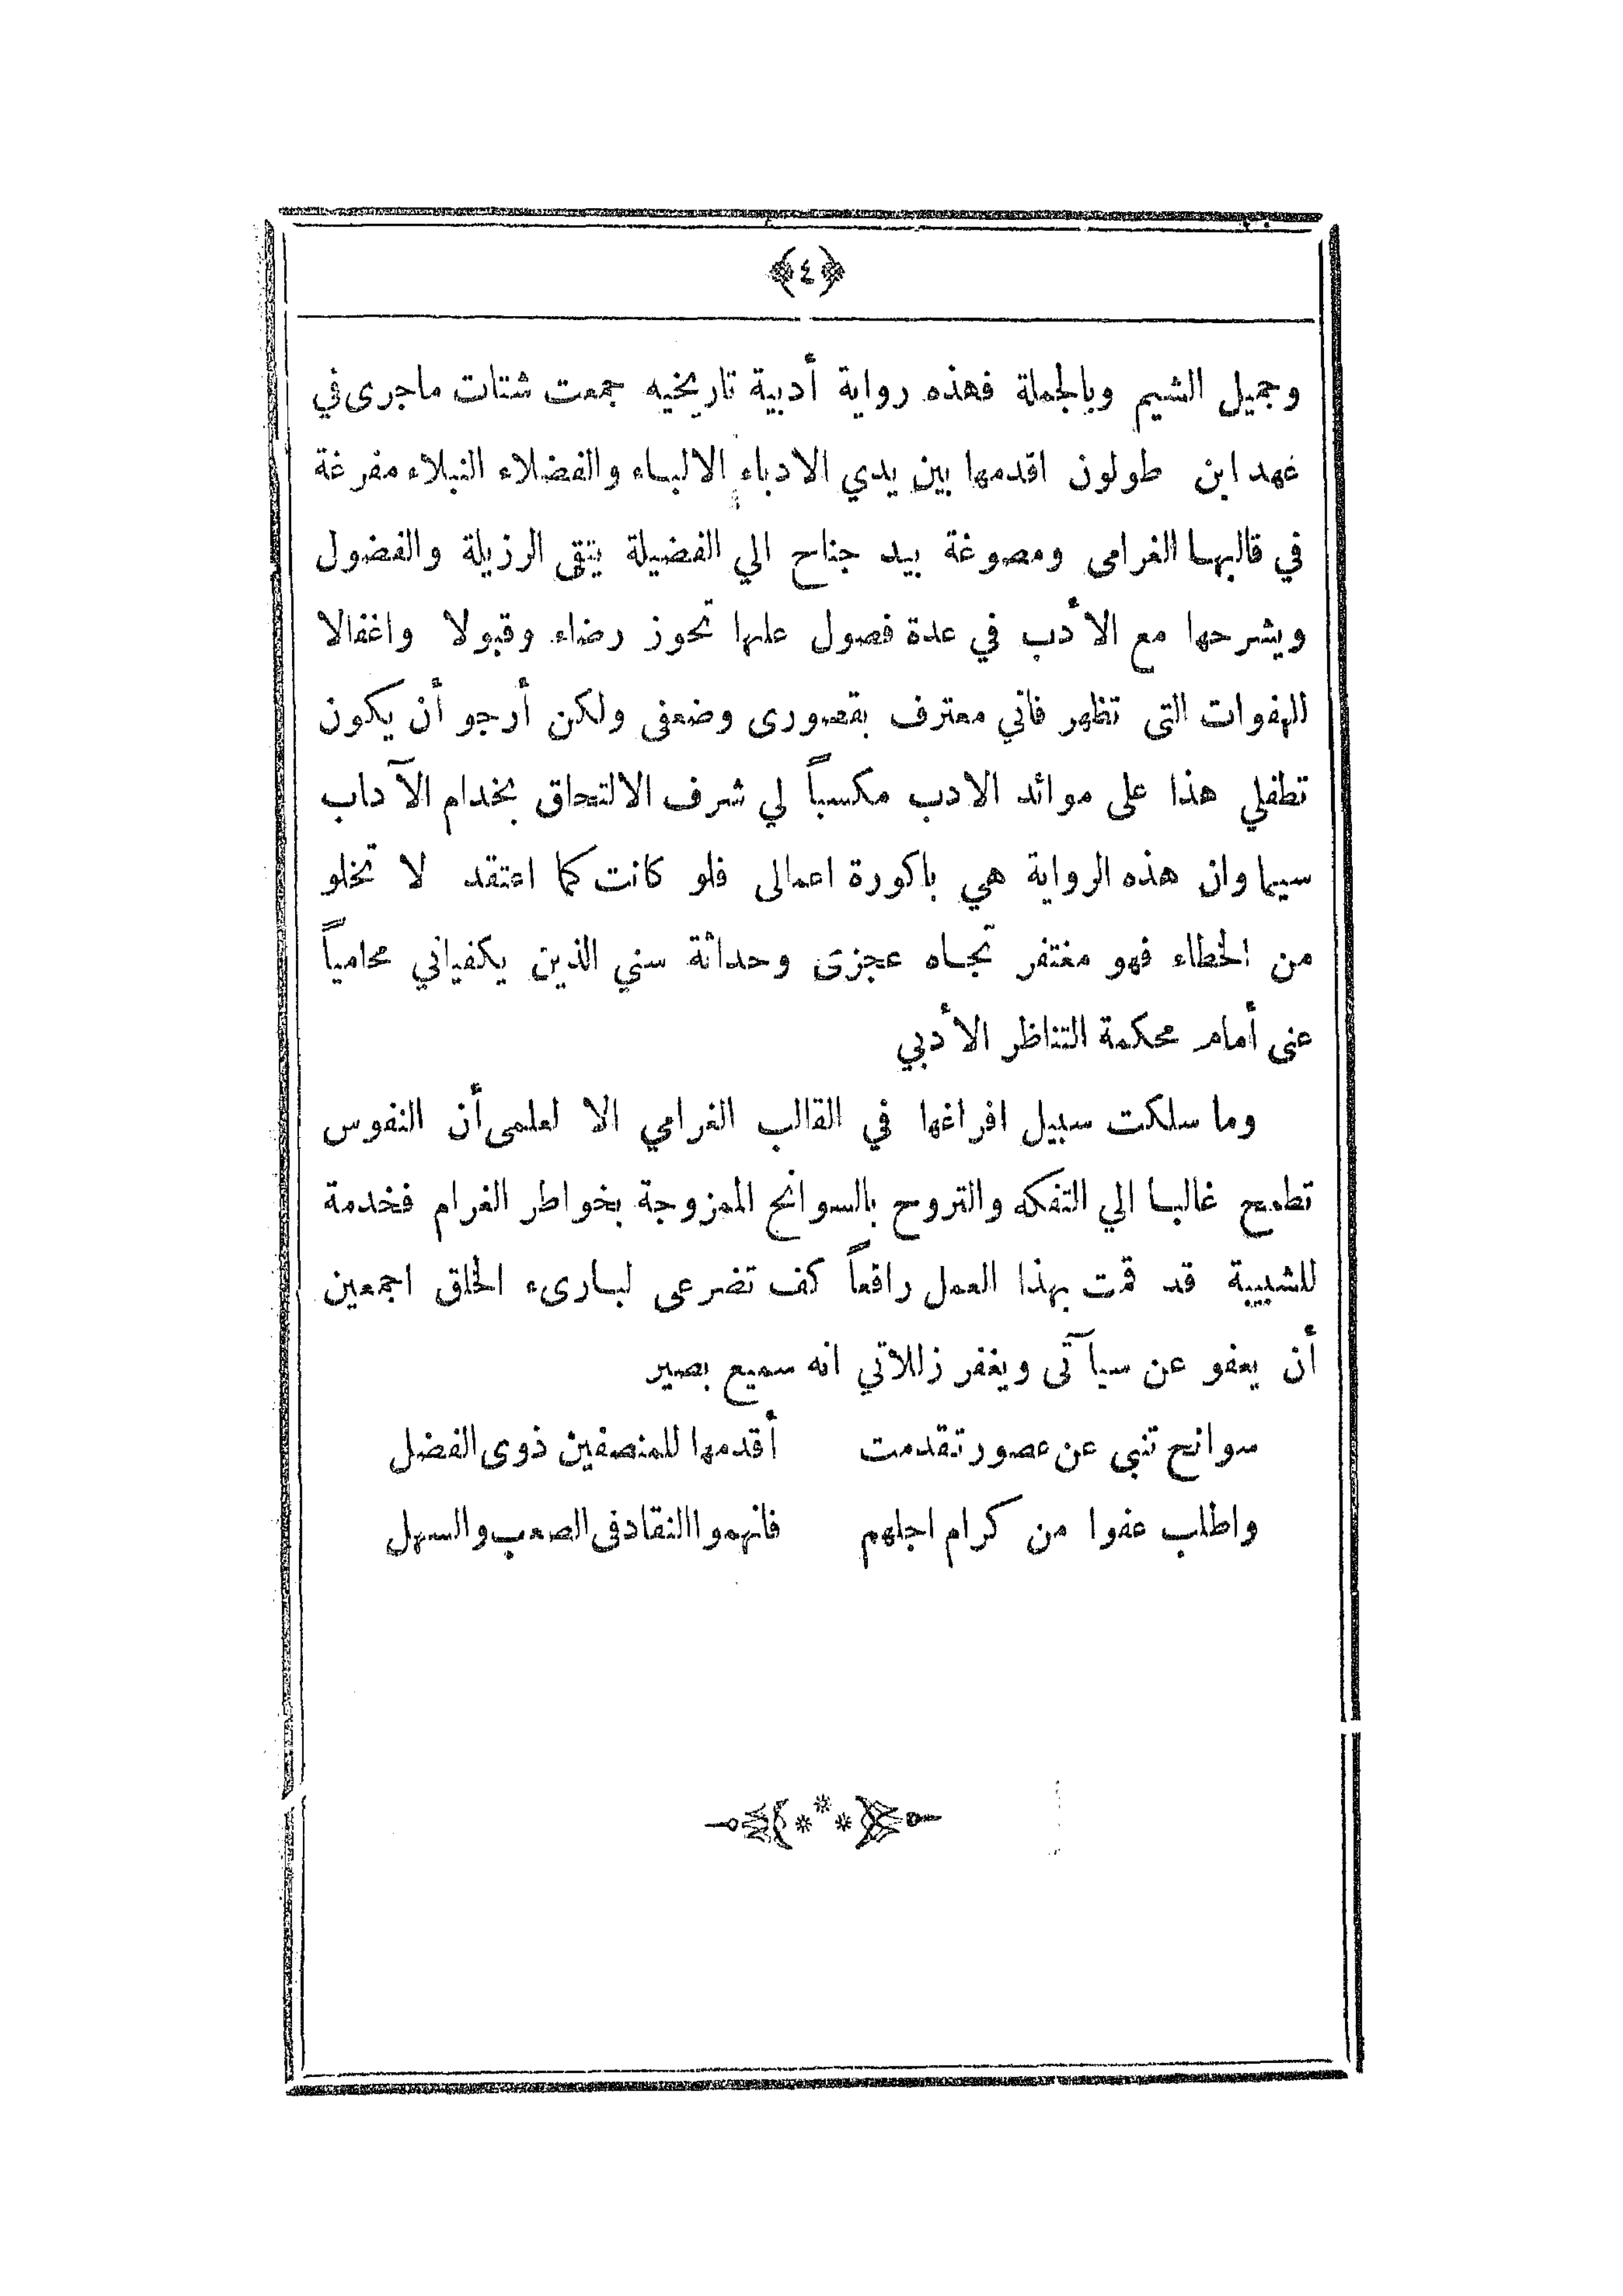 ﴿٤﴾
وجميل الشيم وبالجملة فهذه رواية أدبية تاريخيه جمعت شتات ماجرى في
عهد ابن طولون اقدمها بين يدي الادباء الالباء والفضلاء النبلاء مفرغة
في قالبها الغرامى ومصوغة بيد جناح الي الفضيلة يتقى الرزيلة والفضول
ويشرحها مع الأدب في عدة فصول علها تحوز رضاء وقبولا واغفالا
للهفوات التى تظهر فاني معترف بقصورى وضعفى ولكن أرجو أن يكون
تطفلي هذا على موائد الادب مكسباً لي شرف الالتحاق بخدام الآداب
سيما وان هذه الرواية هي باكورة اعمالى فلو كانت كما اعتقد لا تخلو
من الخطاء فهو مغتفر تجاه عجزى وحداثة سني الذين يكفياني محامياً
عنى أمام محكمة التناظر الأدبي
وما سلكت سبيل افراغها في القالب الغرامي الا لعلمى أن النفوس
تطمح غالبا الي التفكه والتروح بالسوانح الممزوجة بخواطر الغرام فخدمة
للشبيبة قد قمت بهذا العمل رافعاً كف تضرعى لبارىء الخلق اجمعين
أن يعفو عن سيآتى ويغفر زللاتي انه سميع بصير
سوانح تنبى عن عصور تقدمت أقدمها للمنصفين ذوى الفضل
واطلب عفوا من كرام اجلهم فانهموا النقاد فى الصعب والسهل